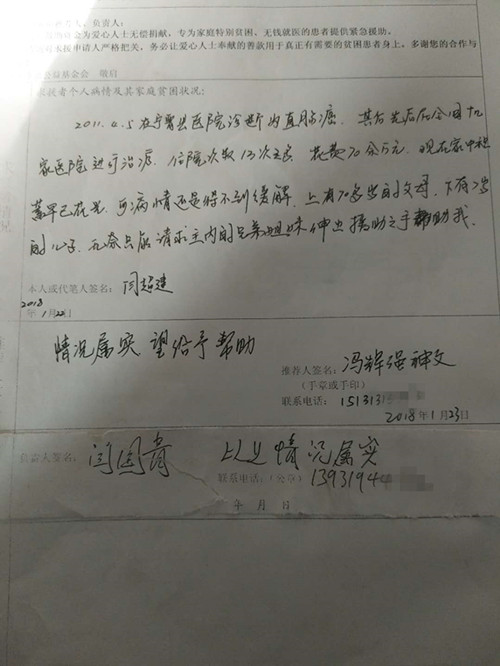 荐人、负责人:
会为爱心人士无偿捐献，专为家庭特别贫困、无钱就医的患者提供紧急援助。
申请人严格把关，务必让爱心人士奉献的善款用于真正有需要的贫困患者身上，多谢您的合作与
公益基金会 敬启
者个人病情及其家庭贫困状况:
2011.4.5在宁晋县医院诊断为直肠癌，其后先后在全国九
家医院进行治疗，住院次数13次之多，花费70余万元，现在家中积
蓄早已花光，可病情还是得不到缓解，上有70多岁的父母，下有7岁
的儿子，无奈之后请求主内的兄弟姐妹伸出援助之手帮助我.
本人或代笔人签名: 闫超建
2018
年1月22日
情况属实 望给予帮助
推荐人签名: 冯辉强神父
(手章或手印)
联系电话: 15131
2018年1月23日
负责人签名: 闫国 以上情况属实
联系电话:(公章) 1393194
年 月 日